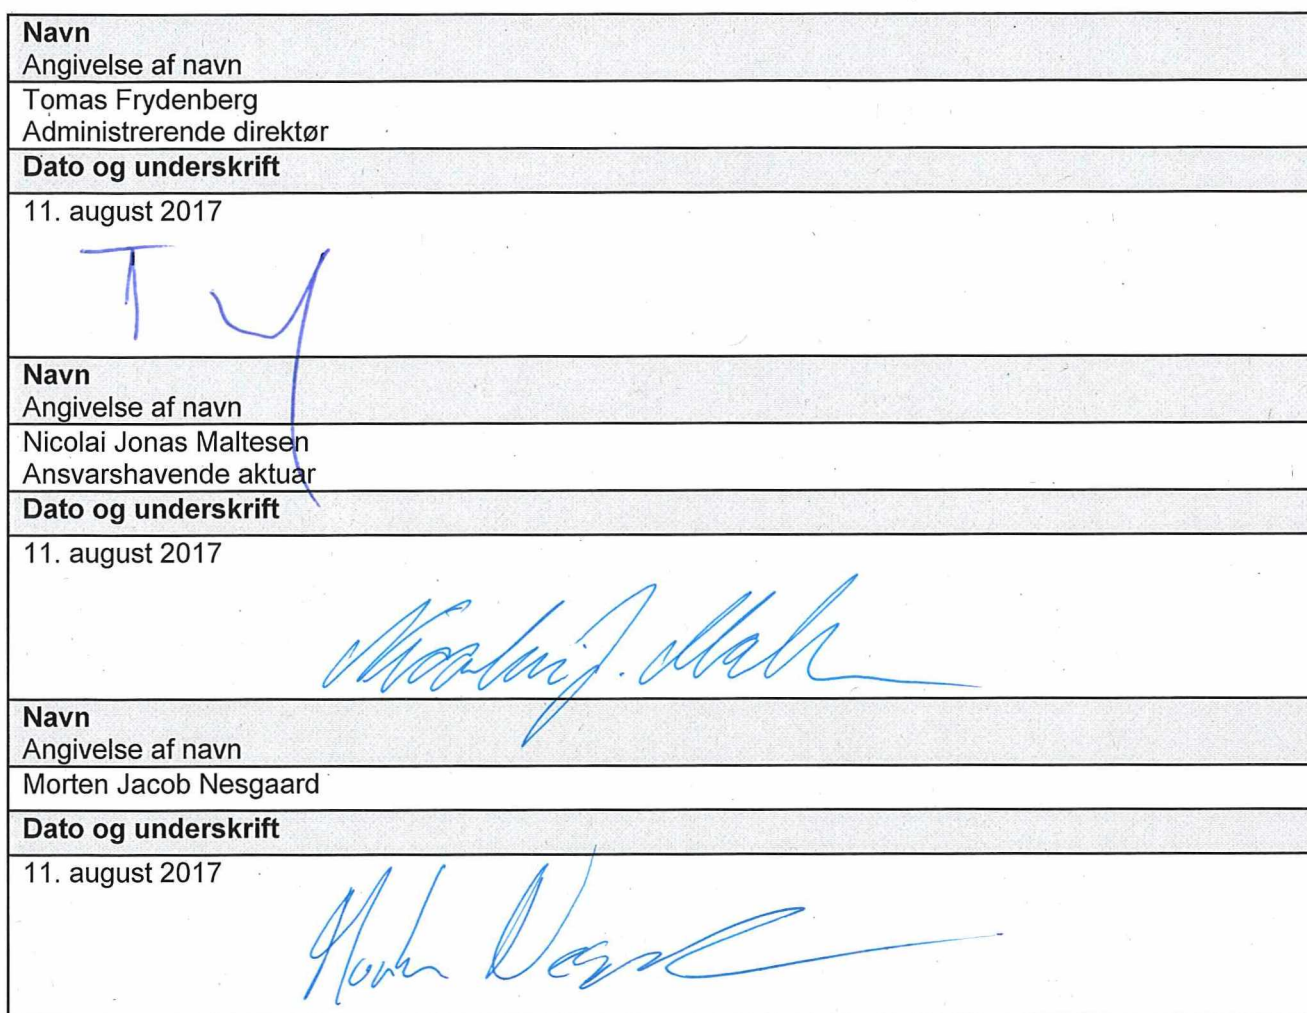 Navn
Angivelse af navn
Tomas Frydenberg
Administrerende direktør
Dato og underskrift
11. august 2017
Navn
Angivelse af navn
Nicolai Jonas Maltesen
Ansvarshavende aktuar
Dato og underskrift
11. august 2017
Nicolai J. 
Navn
Angivelse af navn
Morten Jacob Nesgaard
Dato og underskrift
11. august 2017